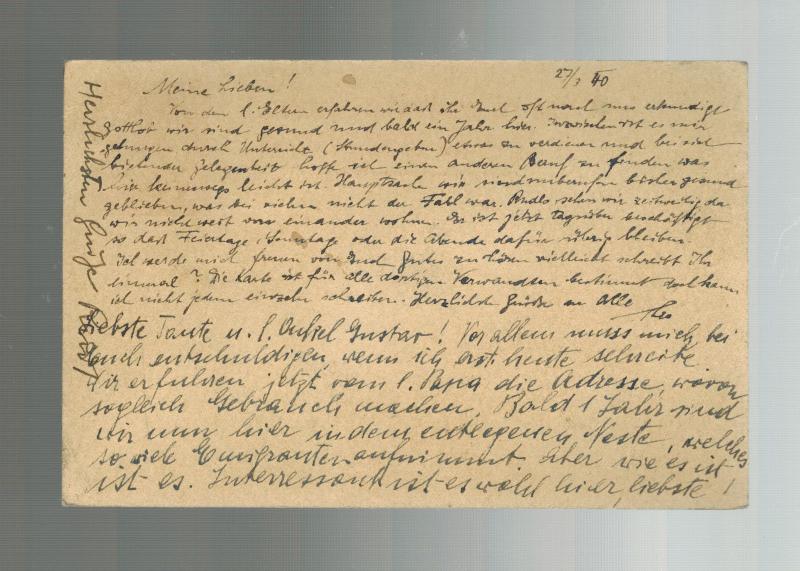 27/3 40
Meine Lieben!
Von den l. Eltern erfahren wir daß ihr Euch oft nach uns erkundigt
Gottlob wir sind gesund und bald ein Jahr hier. Inzwischen ist es mir
gelungen durch Unterricht (Stundengeben) etwas zu verdienen und bei sich
bietender Gelegenheit hoffe ich einen anderen Beruf zu finden was
hier keineswegs leicht ist. Hauptsache wir sind unberufen bisher gesund
geblieben, was bei vielen nicht der Fall war. sehen wir zeitweilig da
wir nicht weit von einander wohnen. Er ist jetzt tagsüber beschäftigt
so daß Feiertage, Sonntage oder die Abende dafür übrig bleiben.
Ich werde mich freuen von Euch Gutes zu hören vielleicht schreibt Ihr
einmal? Die Karte ist für alle dortigen Verwandten bestimmt doch kann
ich nicht jedem einzeln schreiben. Herzliche Grüße an Alle
Liebste Tante u. l. Onkel Gustav! Vor allem muss mich bei
Euch entschuldigen, wenn ich erst heute schreibe.
Wir erfuhren jetzt vom l. Papa die Adresse, wovon
sogleich Gebrauch machen. Bald 1 Jahr sind
wir nun hier in dem entlegenen Neste, welches
so viele Emigranten aufnimmt. Aber wie es ist
ist es. Interressant ist es wohl hier, liebste
Herzlichsten Grüße